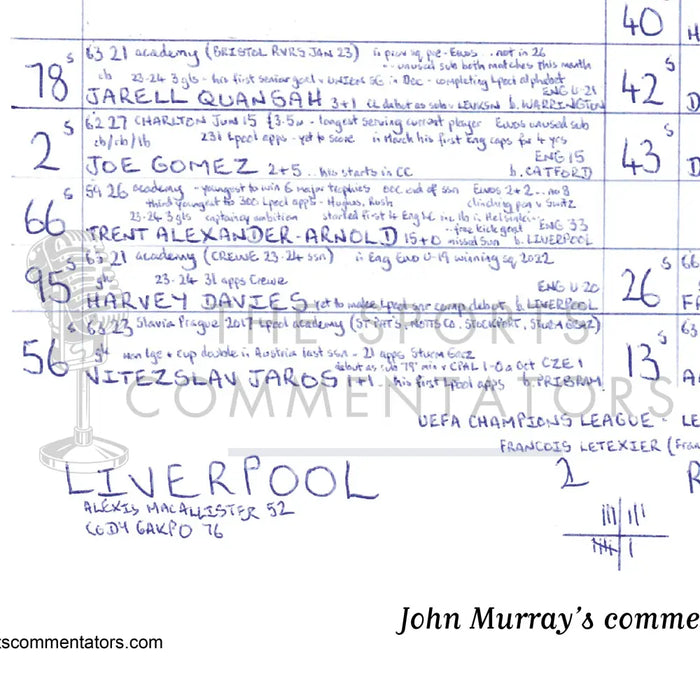 40
78 s 6321 academy (BRISTOL RVRS JAN 23) in prov sq pre-Euros .. not in 26
.. unused sub both matches this month
cb 23-24 3 gls - his first senior goal v UNION SG in Dec - completing Lpool alphabet
ENG U-21
JARELL QUANSAH 3+1 CL debut as sub v LEVKSN b. WARRINGTON
42 s
2 s 6227 CHARLTON JUN 15 £3.5m - longest serving current player Euros unused sub
cb/rb/lb 231 Lpool apps - yet to score in March his first Eng caps for 4 yrs
ENG 15
JOE GOMEZ 2+5 .. his starts in CC b. CATFORD
43 s
66 s 5926 academy - youngest to win 6 major trophies OOC end of ssn Euros 2+2 .. no 8
third youngest to 300 Lpool apps - Hughes, Rush clinching pen v Switz
23-24 3 gls captaincy ambition started first in Eng LC in lb in Helsinki
.. free kick goal ENG 33
TRENT ALEXANDER-ARNOLD 15+0 missed Sun b. LIVERPOOL
95 s 6321 academy (CREWE 23-24 ssn) in Eng Euro U-19 winning sq 2022
gk 23-24 31 apps Crewe
ENG U-20
HARVEY DAVIES yet to make Lpool snr comp debut b. LIVERPOOL
26 s
56 s 6323 Slavia Prague 2017 Lpool academy (ST PATS, NOTTS CO, STOCKPORT, STURM GRAZ)
gk won lge + cup double in Austria last ssn - 21 apps Sturm Graz
debut as sub 79 min v CPAL 1-0 a Oct CZE 1
VITEZSLAV JAROS 1+1 .. his first Lpool apps b. PRIBRAM
13 s
THE SPORTS
COMMENTATORS
UEFA CHAMPIONS LEAGUE - LE
FRANCOIS LETEXIER (Fra
LIVERPOOL 2 R
ALEXIS MACALLISTER 52
CODY GAKPO 76
John Murray's comme
tscommentators.com